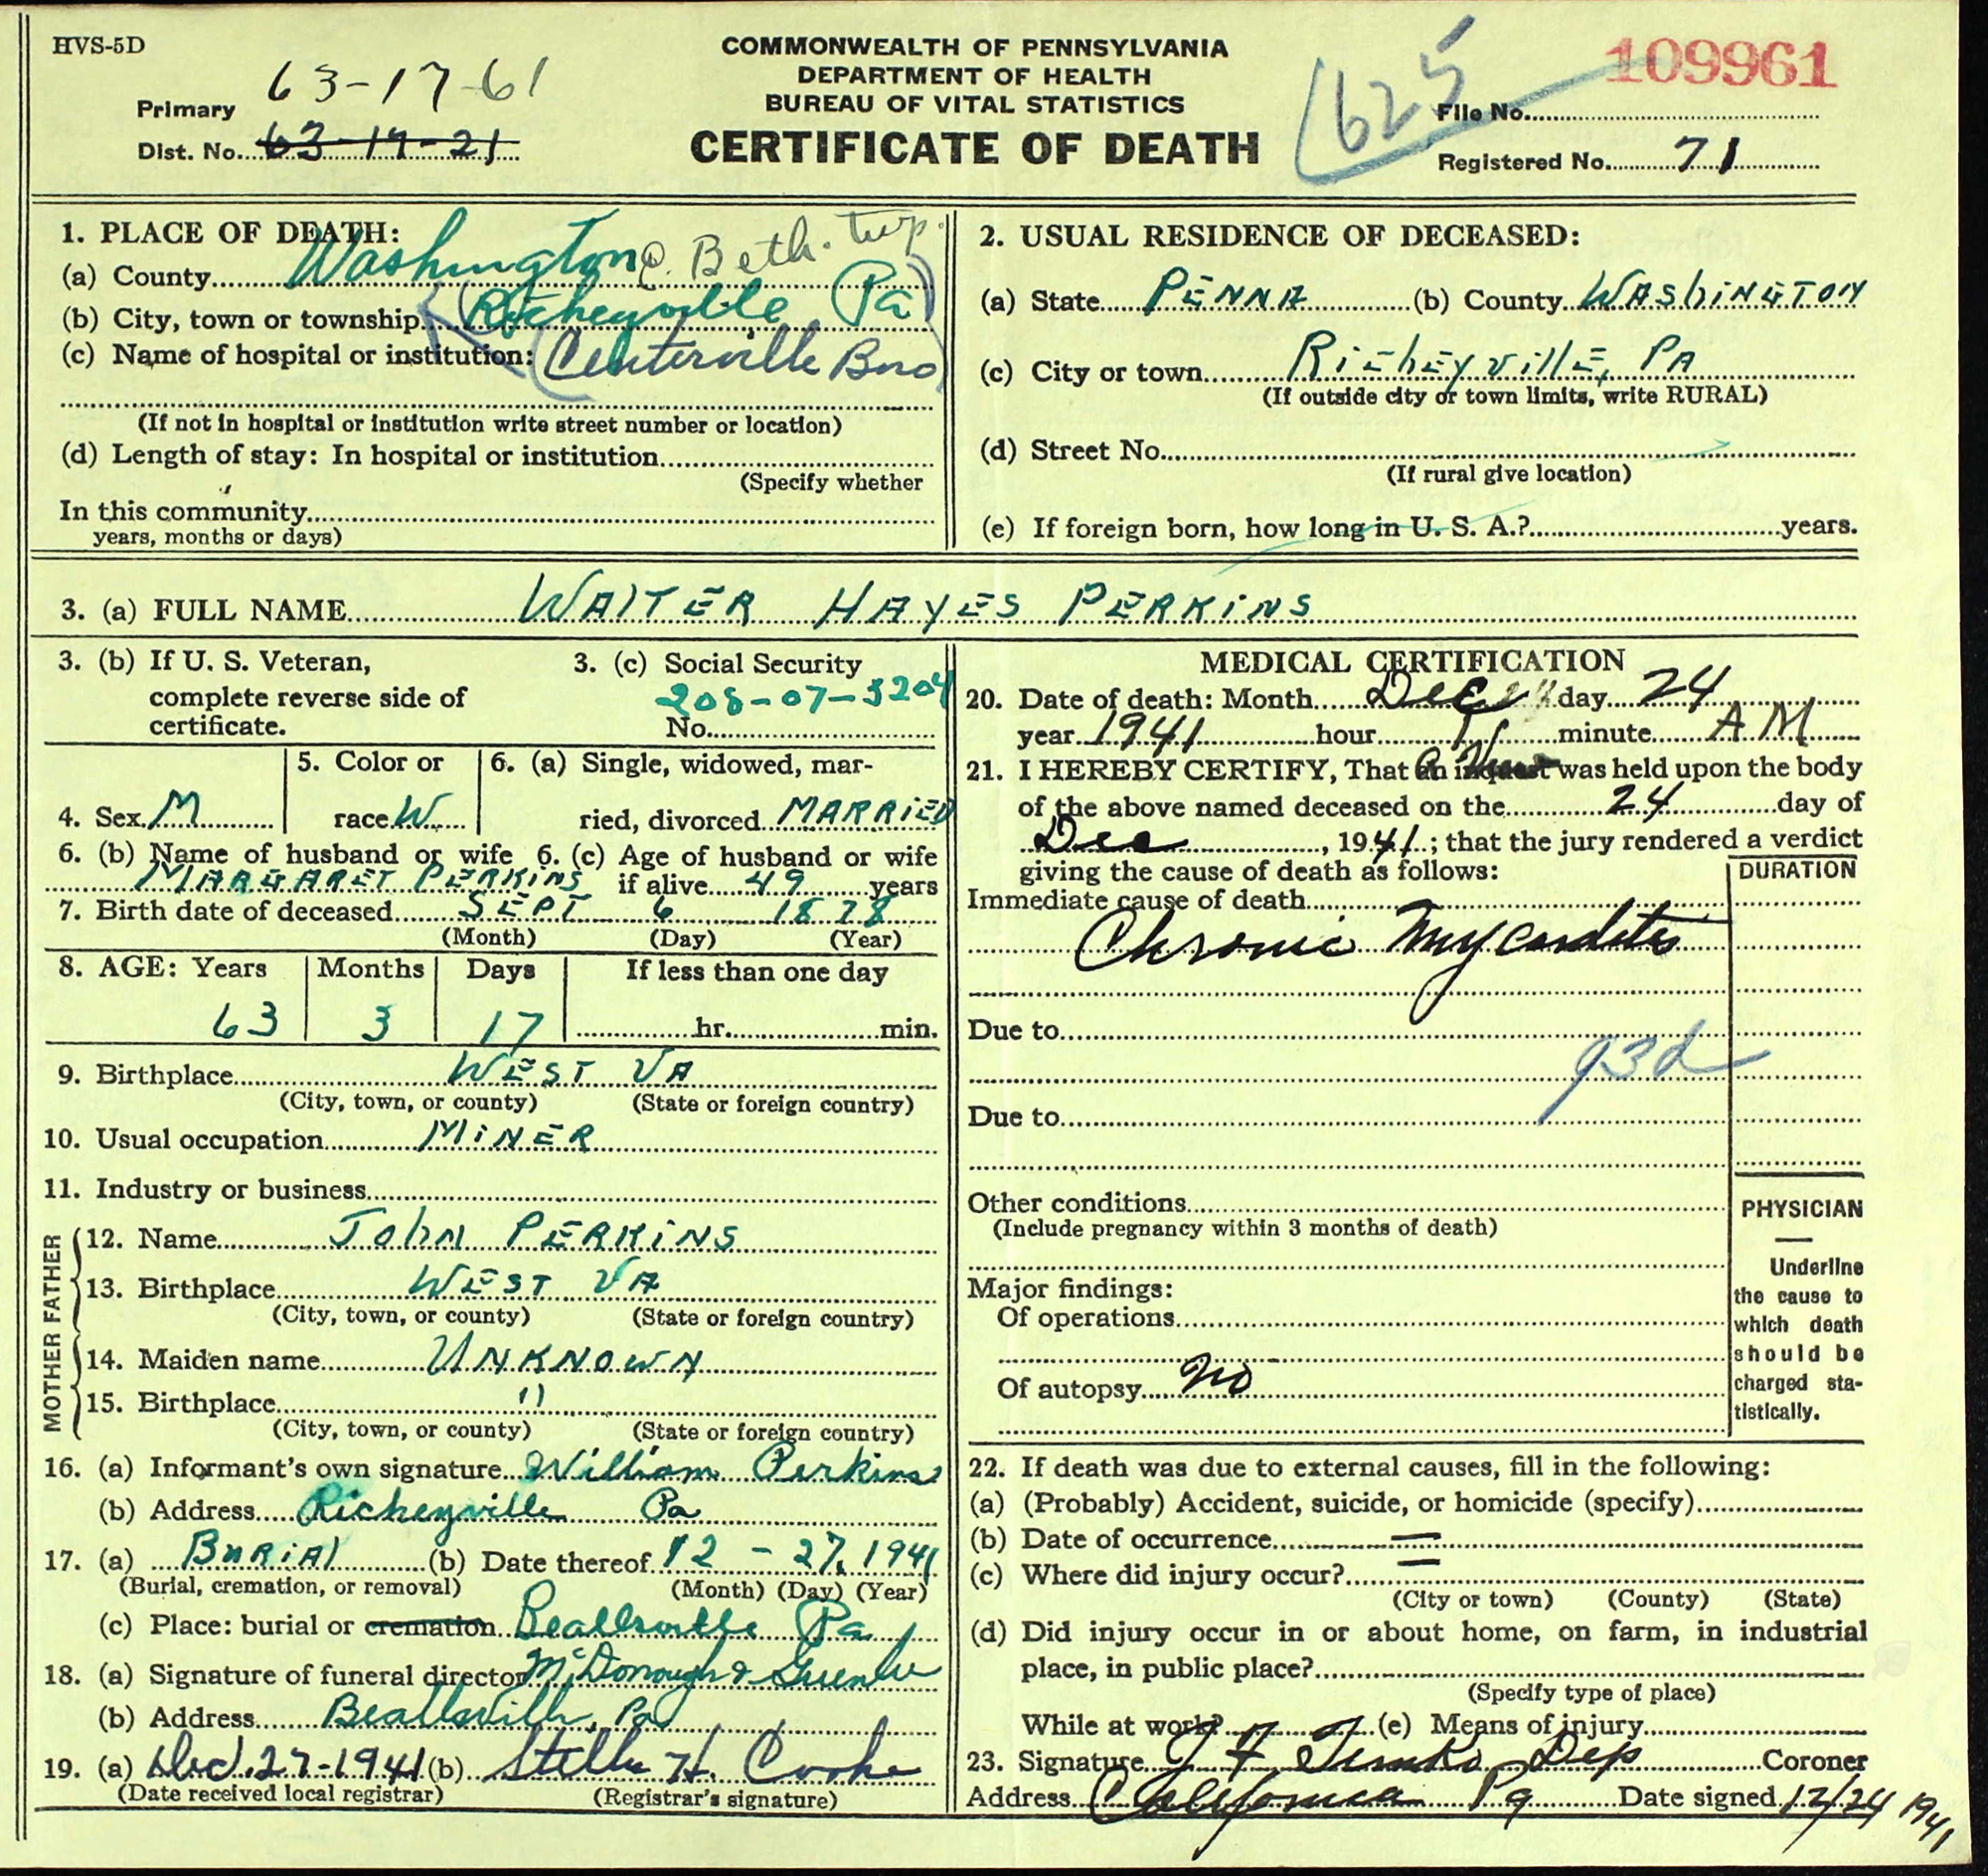 HVS-5D
COMMONWEALTH OF PENNSYLVANIA
DEPARTMENT OF HEALTH
BUREAU OF VITAL STATISTICS
CERTIFICATE OF DEATH
63-17-61
Primary
Dist. No. 63-19-21
1625
109961
File No.
Registered No. 71
1. PLACE OF DEATH:
(a) County Washington E. Beth. twp.
(b) City, town or township Richeyville Pa
(c) Name of hospital or institution: Centerville Boro
(If not in hospital or institution write street number or location)
(d) Length of stay: In hospital or institution
(Specify whether
In this community
years, months or days)
2. USUAL RESIDENCE OF DECEASED:
(a) State PENNA (b) County WAShiNGTON
(c) City or town RiChEyvillE, PA
(If outside city or town limits, write RURAL)
(d) Street No.
(If rural give location)
(e) If foreign born, how long in U. S. A.? years.
3. (a) FULL NAME WAlTER HAYES PERKiNS
3. (b) If U. S. Veteran,
complete reverse side of
certificate.
3. (c) Social Security
No. 208-07-5204
4. Sex M
5. Color or
race W
6. (a) Single, widowed, mar-
ried, divorced MARRiED
6. (b) Name of husband or wife
MARGARET PERKINS
6. (c) Age of husband or wife
if alive 49 years
7. Birth date of deceased SEPT 6 1878
(Month) (Day) (Year)
8. AGE: Years Months Days If less than one day
63 3 17 hr. min.
9. Birthplace WEST VA
(City, town, or county) (State or foreign country)
10. Usual occupation MiNER
11. Industry or business
FATHER
12. Name JohN PERKiNS
13. Birthplace WEST VA
(City, town, or county) (State or foreign country)
MOTHER
14. Maiden name UNKNOWN
15. Birthplace "
(City, town, or county) (State or foreign country)
16. (a) Informant's own signature William Perkins
(b) Address Richeyville Pa
17. (a) BuRiAl (b) Date thereof 12 - 27, 1941
(Burial, cremation, or removal) (Month) (Day) (Year)
(c) Place: burial or cremation Beallsville Pa
18. (a) Signature of funeral director McDonough &
(b) Address Beallsville, Pa
19. (a) Dec. 27-1941 (b) Stella H. Cooke
(Date received local registrar) (Registrar's signature)
MEDICAL CERTIFICATION
20. Date of death: Month Dec day 24
year 1941 hour minute AM
21. I HEREBY CERTIFY, That an inquest was held upon the body
of the above named deceased on the 24 day of
Dec, 1941; that the jury rendered a verdict
giving the cause of death as follows:
DURATION
Immediate cause of death
Chronic Mycarditis
Due to
93d
Due to
Other conditions
(Include pregnancy within 3 months of death)
Major findings:
Of operations
Of autopsy no
PHYSICIAN
Underline
the cause to
which death
should be
charged sta-
tistically.
22. If death was due to external causes, fill in the following:
(a) (Probably) Accident, suicide, or homicide (specify)
(b) Date of occurrence
(c) Where did injury occur?
(City or town) (County) (State)
(d) Did injury occur in or about home, on farm, in industrial
place, in public place?
(Specify type of place)
While at work? (e) Means of injury
23. Signature Dep Coroner
Address California Pa Date signed 12/24 1941